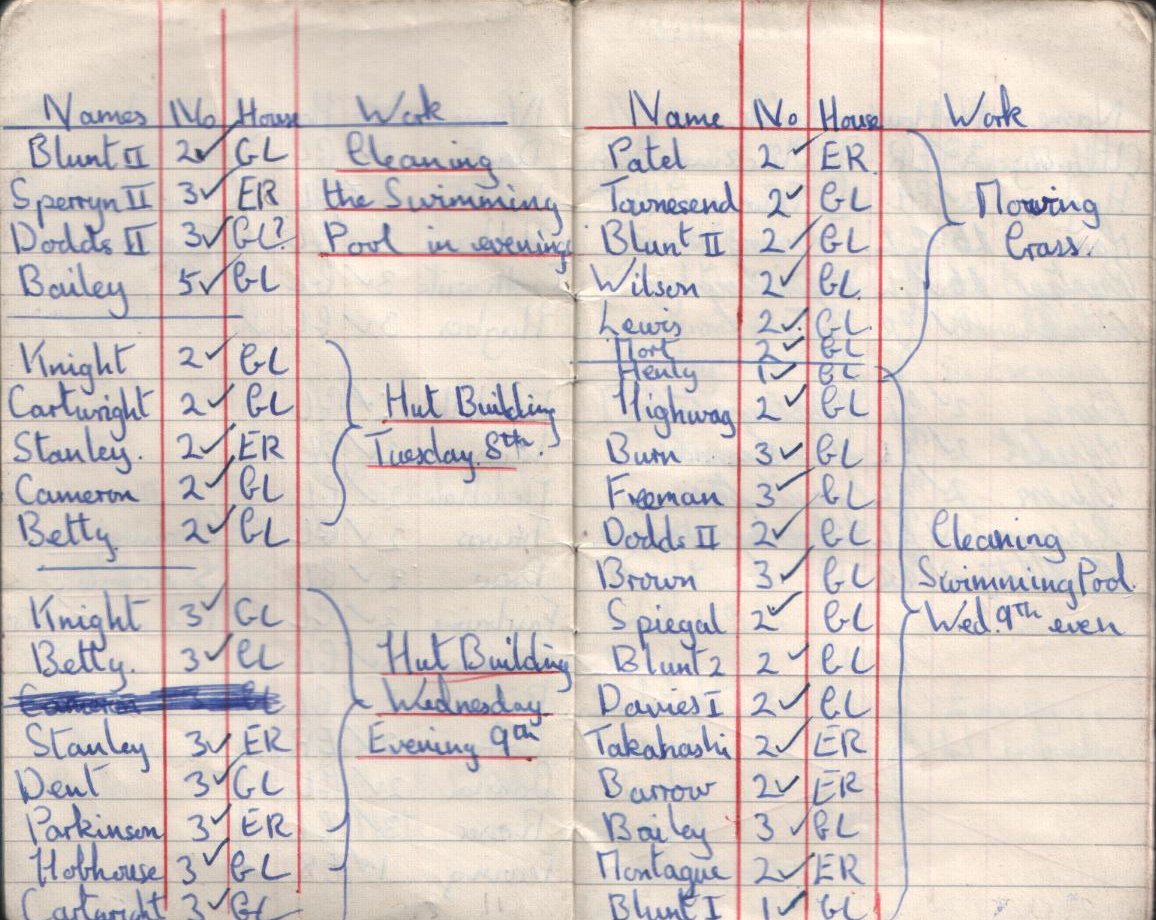 Names No House Work
Blunt II 2✓ GL Cleaning
Sperryn II 3✓ ER the Swimming
Dodds II 3✓ GL? Pool in evening
Bailey 5✓ GL
Knight 2✓ GL
Cartwright 2✓ GL Hut Building
Stanley. 2✓ ER Tuesday. 8th.
Cameron 2✓ GL
Betty. 2✓ GL
Knight 3✓ GL
Betty. 3✓ GL Hut Building
Cameron GL Wednesday
Stanley 3✓ ER Evening 9th
Dent 3✓ GL
Parkinson 3✓ ER
Hobhouse 3✓ GL
Cartwright 3✓ GL
Name No House Work
Patel 2✓ ER.
Townesend 2✓ GL Mowing
Blunt II 2✓ GL Grass.
Wilson 2✓ GL
Lewis 2✓ GL.
Hort 2✓ GL
Henly 1✓ GL
Highway 2✓ GL
Burn 3✓ GL
Freeman 3✓ GL
Dodds II 2✓ GL Cleaning
Brown 3✓ GL Swimming Pool.
Spiegal 2✓ GL Wed. 9th even
Blunt 2 2✓ GL
Davies I 2✓ GL
Takahashi 2✓ ER
Barrow 2✓ ER
Bailey 3✓ GL
Montague 2✓ ER
Blunt I 1✓ GL